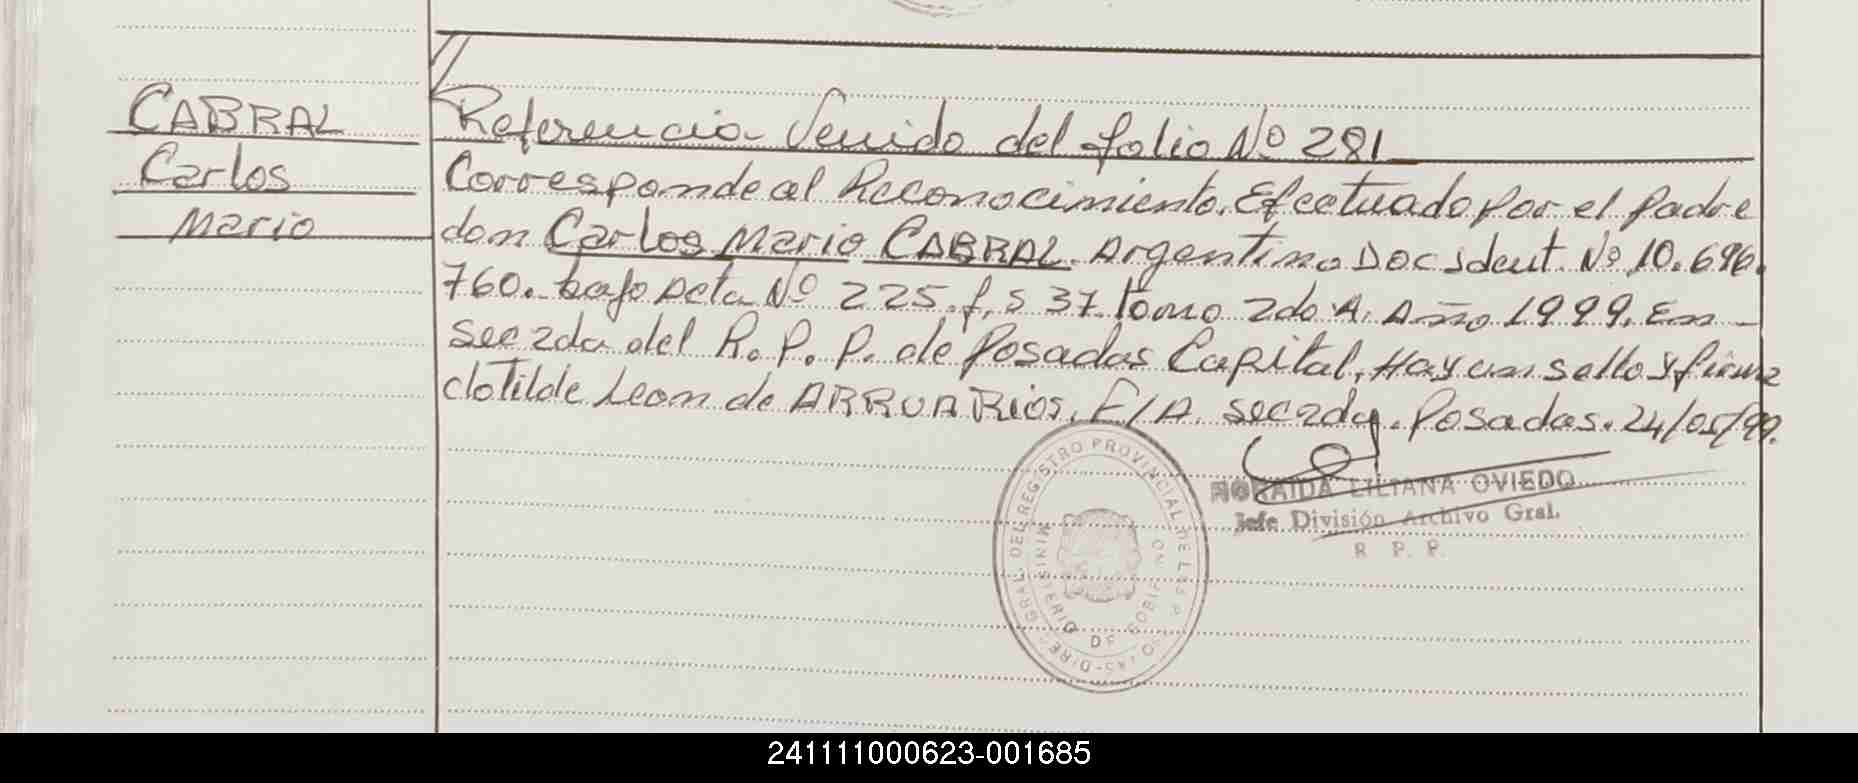 CABRAL
Carlos
Mario
Referencia Venido del folio Nº 281
Corresponde al Reconocimiento. Efectuado por el padre
don Carlos Mario CABRAL. Argentino Doc Ident. Nº 10.696.
760. bajo acta Nº 225. f, s 37. tomo 2do A. Año 1999. En
sec 2da del R. P. P. de Posadas Capital, Hay un sello y firma
clotilde Leon de ARRUA Rios. E/A. sec 2da. Posadas. 24/05/99.
DIREC. GRAL. DEL REGISTRO PROVINCIAL DE LAS
MINISTERIO DE GOBIERNO
LILIANA OVIEDO
Jefe División Archivo Gral.
R. P. P.
241111000623-001685